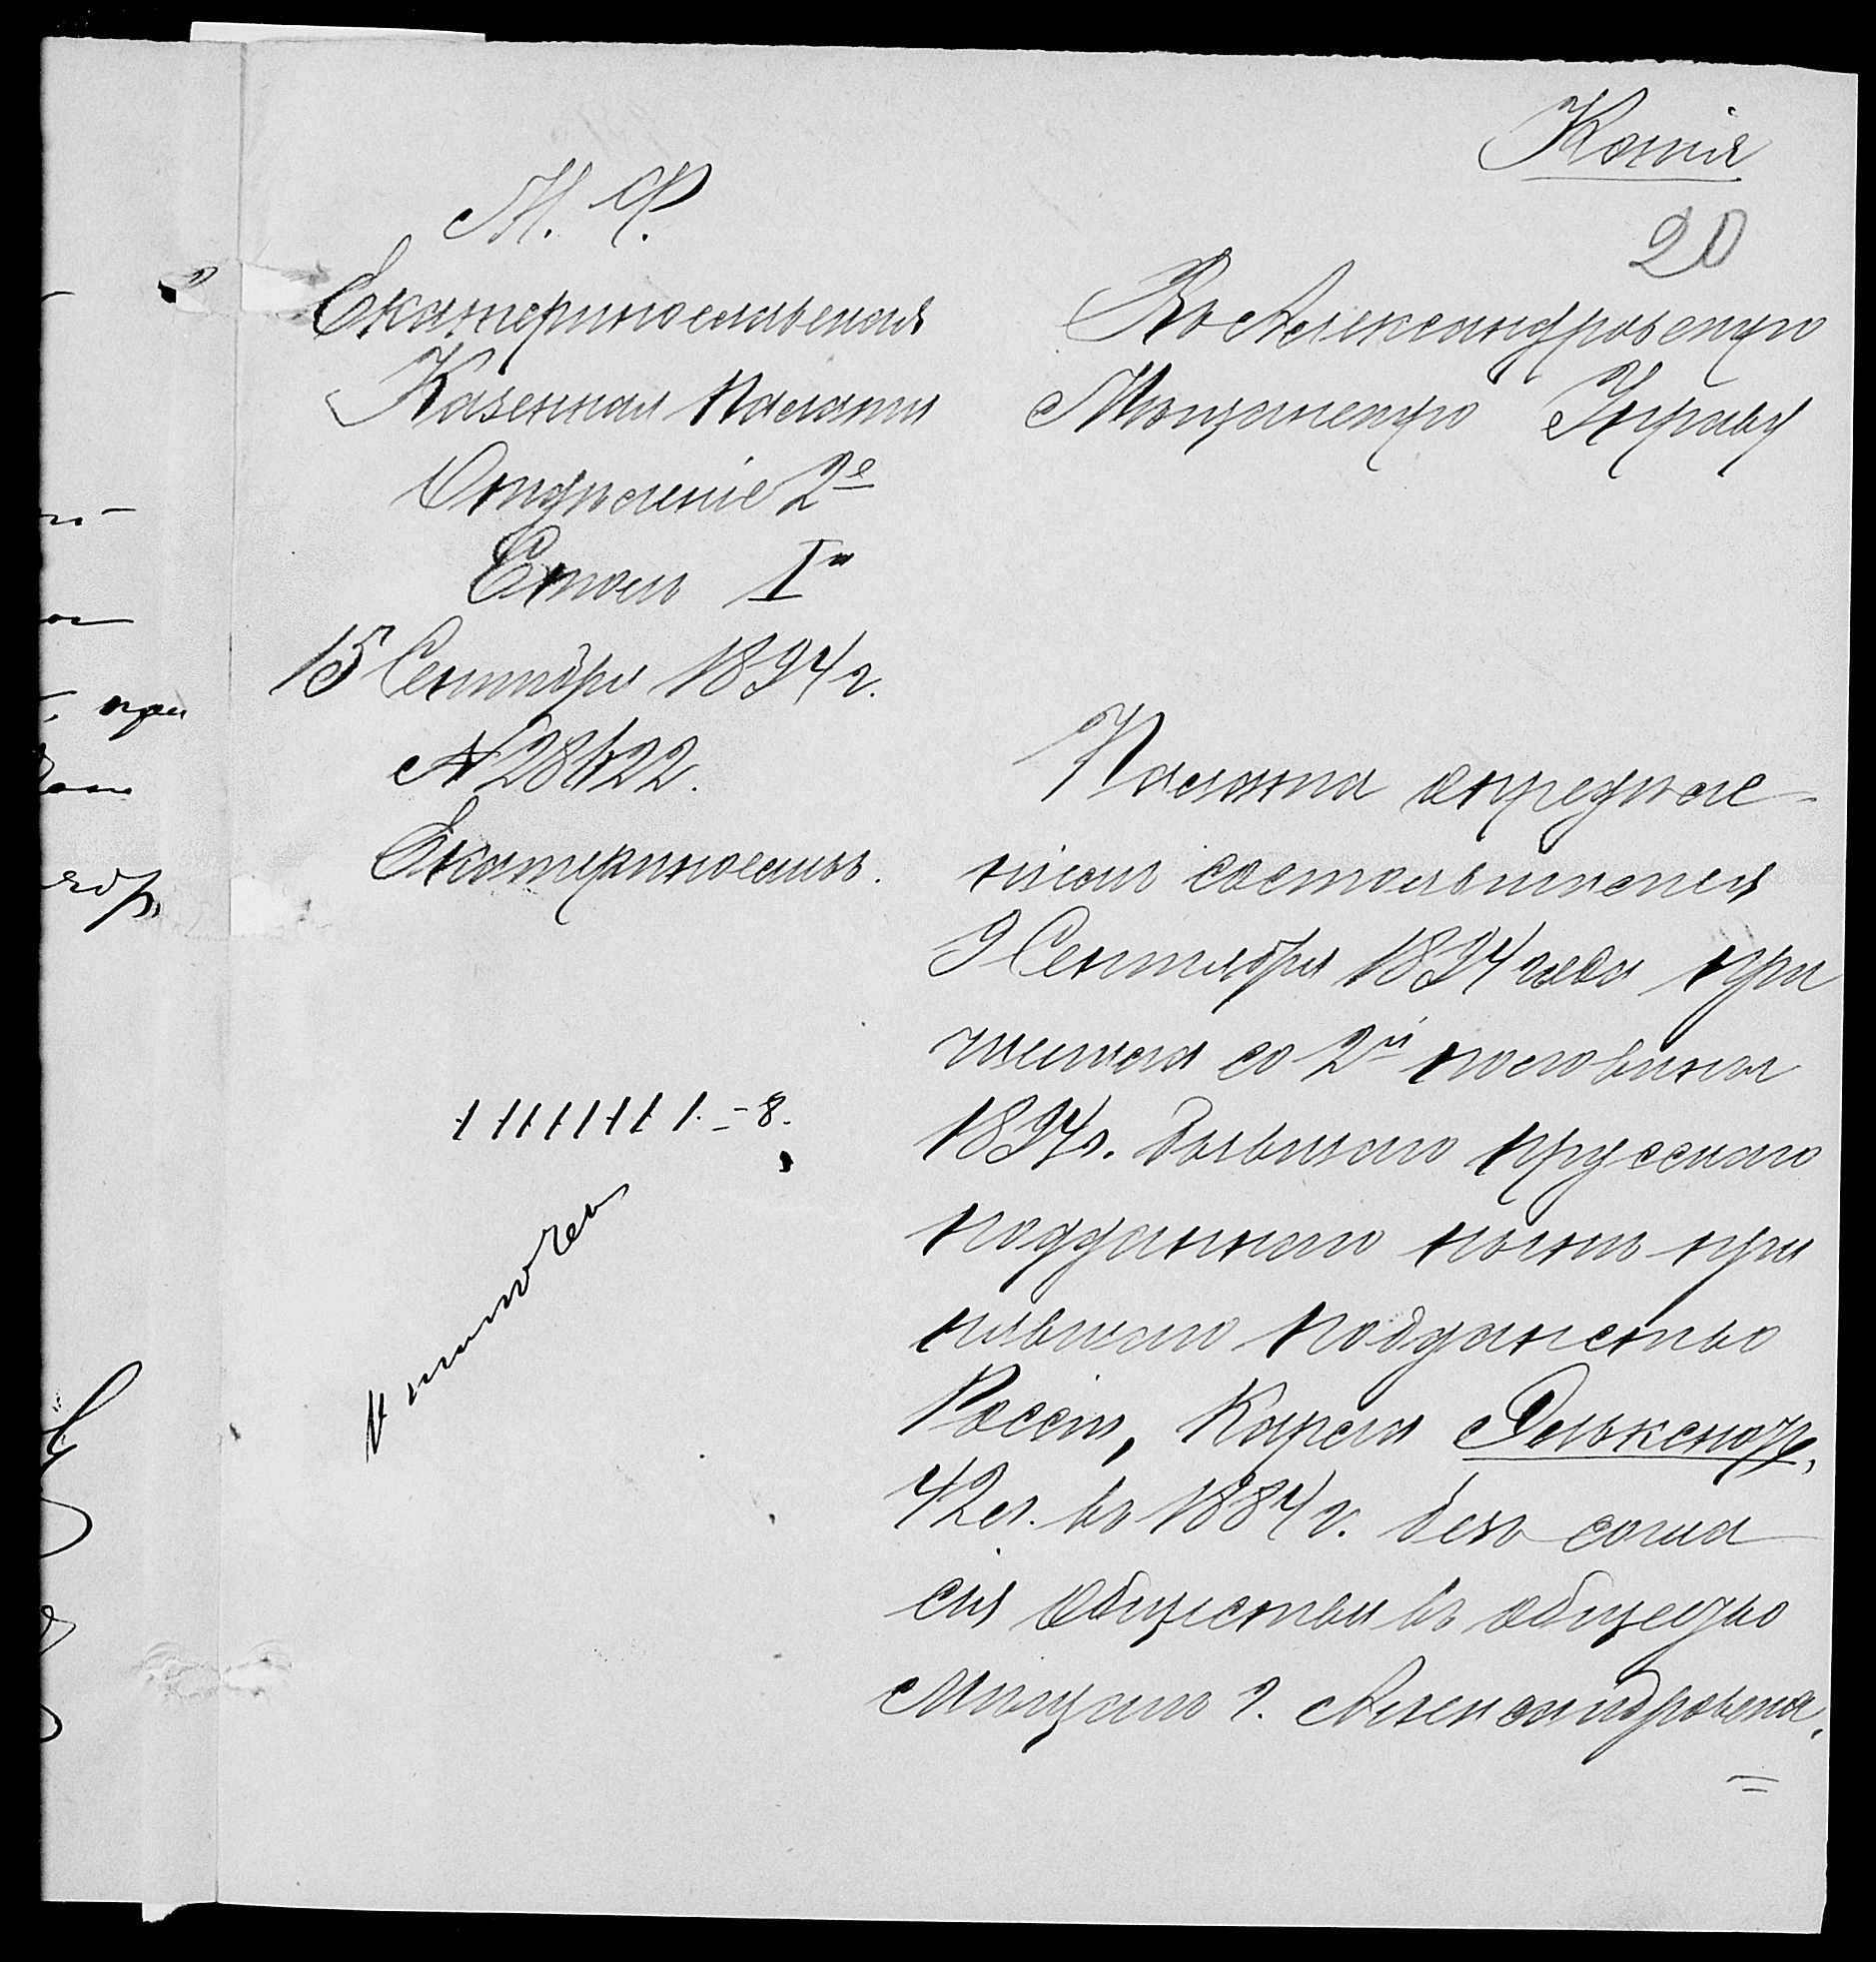 Копія
20
М. Ф.
Екатеринославская
Казенная Палата
Отдѣленіе 2е
Столъ I й
15 Сентября 1894 г.
№ 28622.
Екатеринославъ.
Въ Александровскую
Мѣщанскую Управу
Палата опредѣле-
ніемъ состоявшимся
9 Сентября 1894 года при
числила со 2й половины
1894 г. бывшаго прусскаго
подданнаго нынѣ при
нявшаго подданство
Россіи, Карла
42 л. въ 1884 г. безъ согла
сія общества въ общество
мѣщанъ г. Александровска.
1111111 1. - 8.